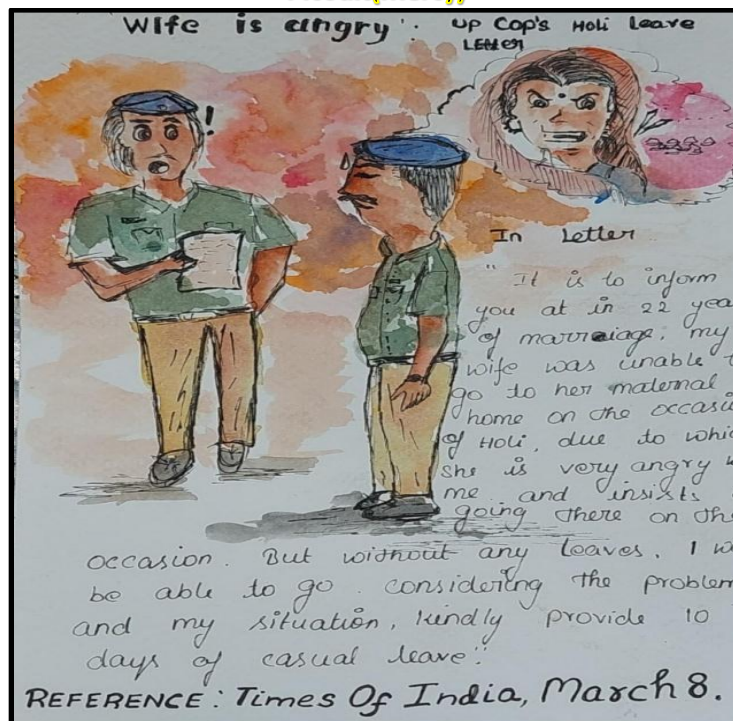 Wife is angry': UP Cop's Holi Leave
Letter
!
In Letter
"It is to inform
you at in 22 yea
of marraiage, my
wife was unable t
go to her maternal
home on the occasi
of Holi, due to whic
she is very angry w
me and insists
going there on th
occasion. But without any leaves, I w
be able to go. considering the problem
and my situation, kindly provide 10
days of casual leave".
REFERENCE: Times Of India, March 8.